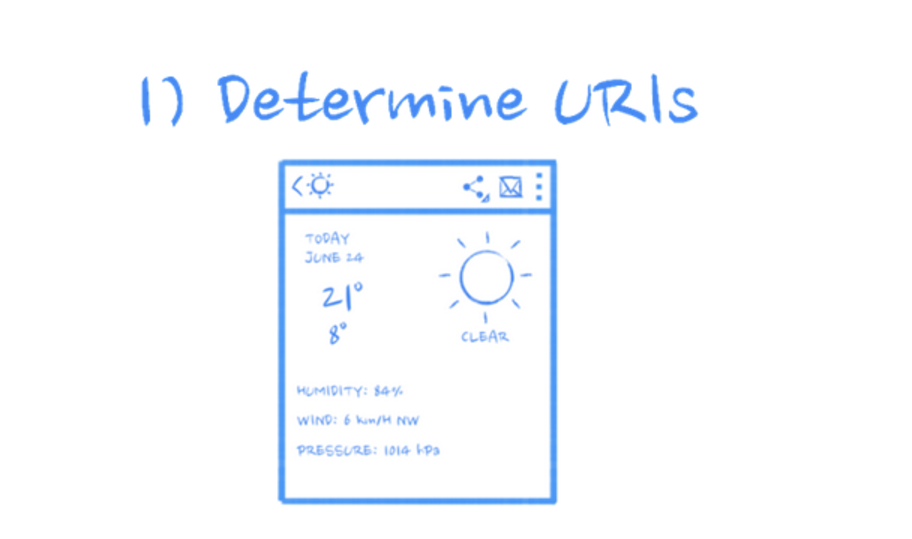 1) Determine URIs
TODAY
JUNE 24
21°
8°
CLEAR
HUMIDITY: 84%
WIND: 6 km/H NW
PRESSURE: 1014 hPa